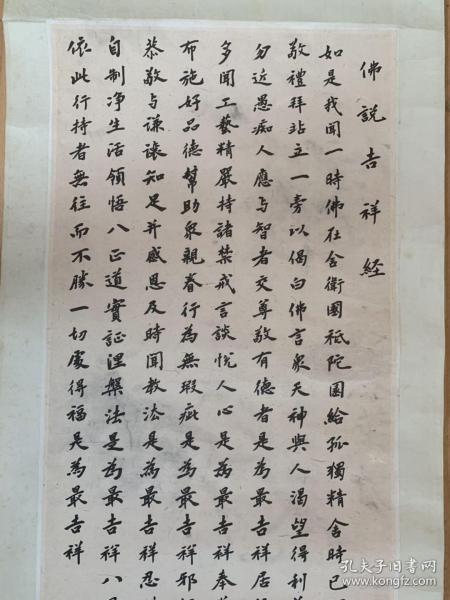 佛説吉祥経
如是我闻一時佛在舍衛國祇陀園給孤獨精舍時已
敬禮拜站立一旁以偈白佛言衆天神與人渴望得利
勿近愚痴人應与智者交尊敬有德者是為最吉祥居
多闻工藝精嚴持諸禁戒言談悦人心是為最吉祥奉
布施好品德幫助衆親眷行為無瑕疵是為最吉祥邪
恭敬与谦讓知足并感恩及時闻教法是為最吉祥忍
自制净生活領悟八正道實証涅槃法是為最吉祥八
依此行持者無往而不勝一切處得福是為最吉祥
孔夫子旧書网